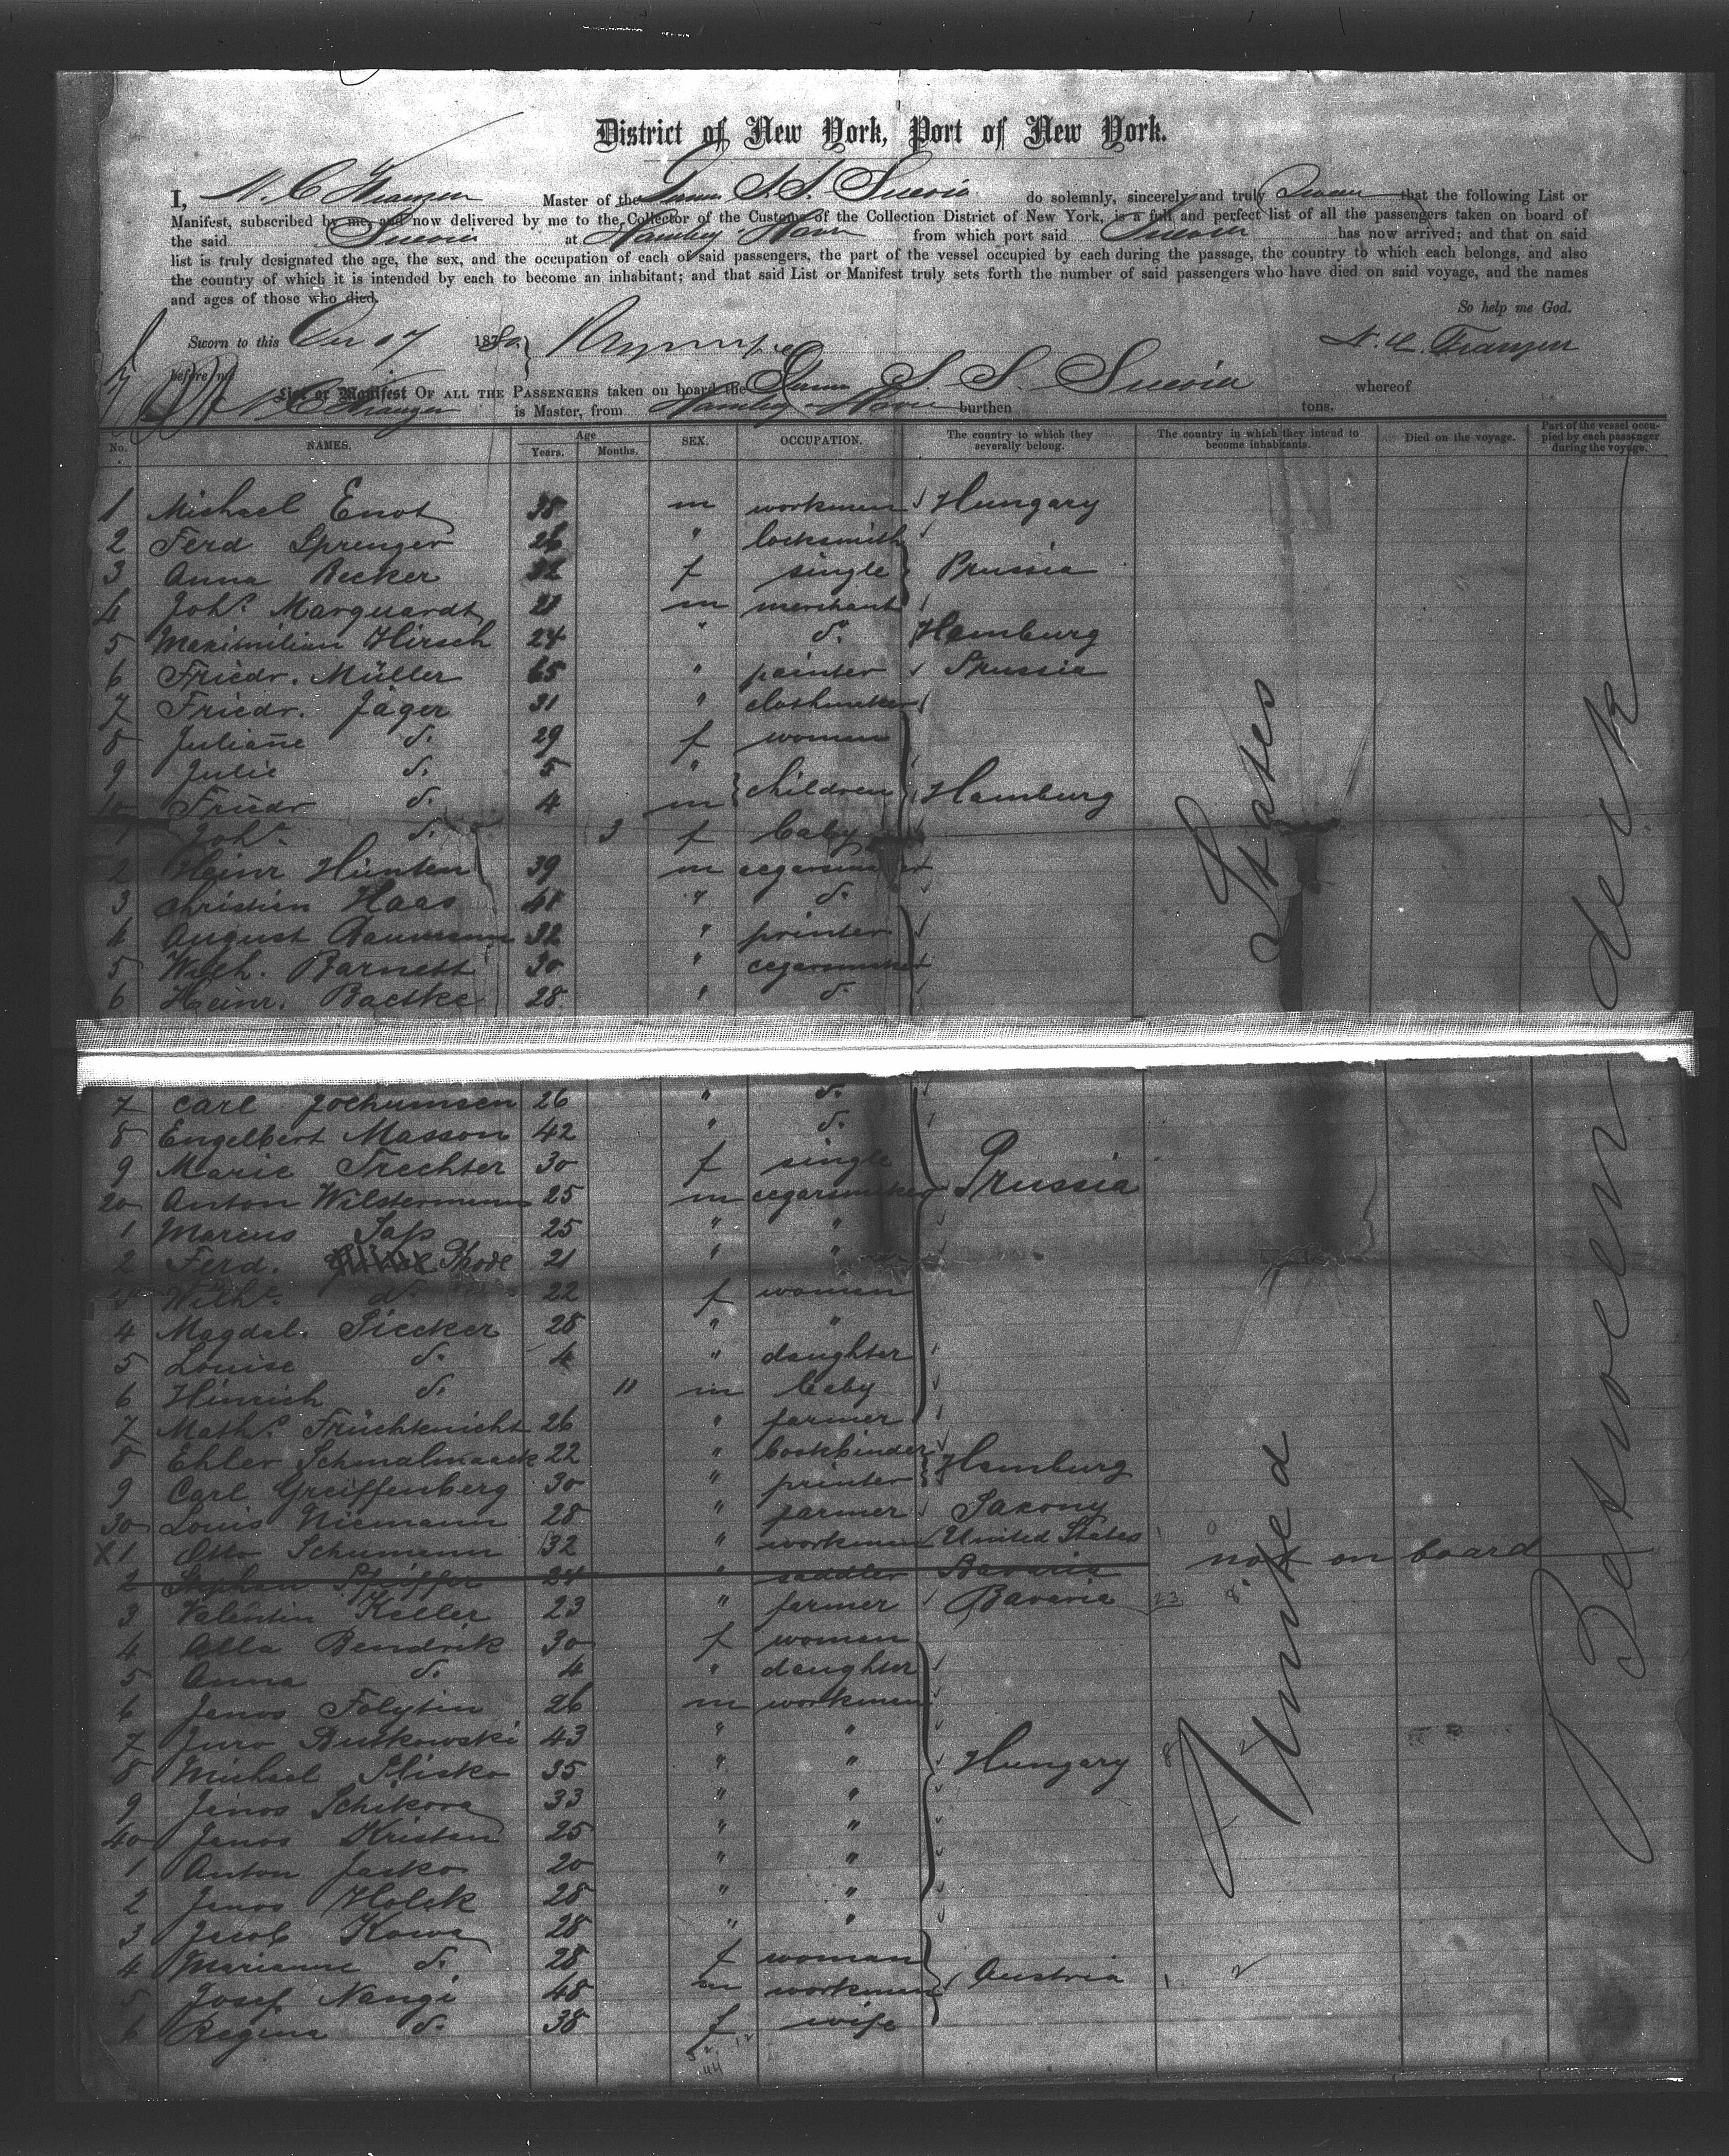 District of New York, Port of New York.
I, N. C. Franzen Master of the German S. S. Suevia do solemnly, sincerely and truly Swear that the following List or
Manifest, subscribed by me, and now delivered by me to the Collector of the Customs of the Collection District of New York, is a full and perfect list of all the passengers taken on board of
the said Suevia at Hamburg Havre from which port said Suevia has now arrived; and that on said
list is truly designated the age, the sex, and the occupation of each of said passengers, the part of the vessel occupied by each during the passage, the country to which each belongs, and also
the country of which it is intended by each to become an inhabitant; and that said List or Manifest truly sets forth the number of said passengers who have died on said voyage, and the names
and ages of those who died.
So help me God.
Sworn to this Dec 17 1880 N. C. Franzen
before me
List or Manifest OF ALL THE PASSENGERS taken on board the German S. S. Suevia whereof
N. C. Franzen is Master, from Hamburg Havre burthen tons.
No. NAMES. Age Years. Months. SEX. OCCUPATION. The country to which they severally belong. The country in which they intend to become inhabitants. Died on the voyage. Part of the vessel occupied by each passenger during the voyage.
1 Michael Enot 38 m workmen Hungary
2 Ferd Sprenger 26 " locksmith
3 Anna Becker 32 f single Prussia
4 Joh. Marquardt 21 m merchant
5 Maximilian Hirsch 24 " d. Hamburg
6 Friedr. Müller 65 " painter Prussia
7 Friedr. Jäger 31 " clothmaker
8 Juliane d. 29 f women
9 Julie d. 5 " children
10 Friedr d. 4 m Hamburg
1 Joh. d. 3 f baby
2 Heinr Hünten 39 m cegarsmaker
3 Christian Haas 41 " d.
4 August Baumann 32 " printer
5 Wilh. Barnett 30 " cegarsmaker
6 Heinr. Baetke 28 " d.
7 Carl Jochumsen 26 " d.
8 Engelbert Masson 42 " d.
9 Marie Trechter 30 f single
20 Anton Wilstermann 25 m cegarsmaker Prussia
1 Marcus Saß 25 " "
2 Ferd. Thode 21 " "
3 Wilhe. d. 22 f women
4 Magdal. Siecker 28 " "
5 Louise d. 4 " daughter
6 Hinrich d. 11 m baby
7 Math. Früchtenicht 26 " farmer
8 Ehler Schmalmaack 22 " bookbinder
9 Carl Greiffenberg 30 " printer Hamburg
30 Louis Niemann 28 " farmer Saxony
X 1 Otto Schumann 32 " workmen United States
2 Stephan Pfeiffer 24 " saddler Bavaria not on board
3 Valentin Keller 23 " farmer Bavaria
4 Alla Bendrik 30 f women
5 Anna d. 4 " daughter
6 Janos Folytin 26 m workmen
7 Juro Butkowski 43 " "
8 Michael Plisko 35 " " Hungary
9 Janos Schikora 33 " "
40 Janos Kristan 25 " "
1 Anton Jasko 20 " "
2 Janos Holek 28 " "
3 Jacob Kowa 28 " "
4 Marianne d. 28 f woman
5 Josef Nangi 48 m workmen Austria
6 Regina d. 38 f wife
United States
Between deck